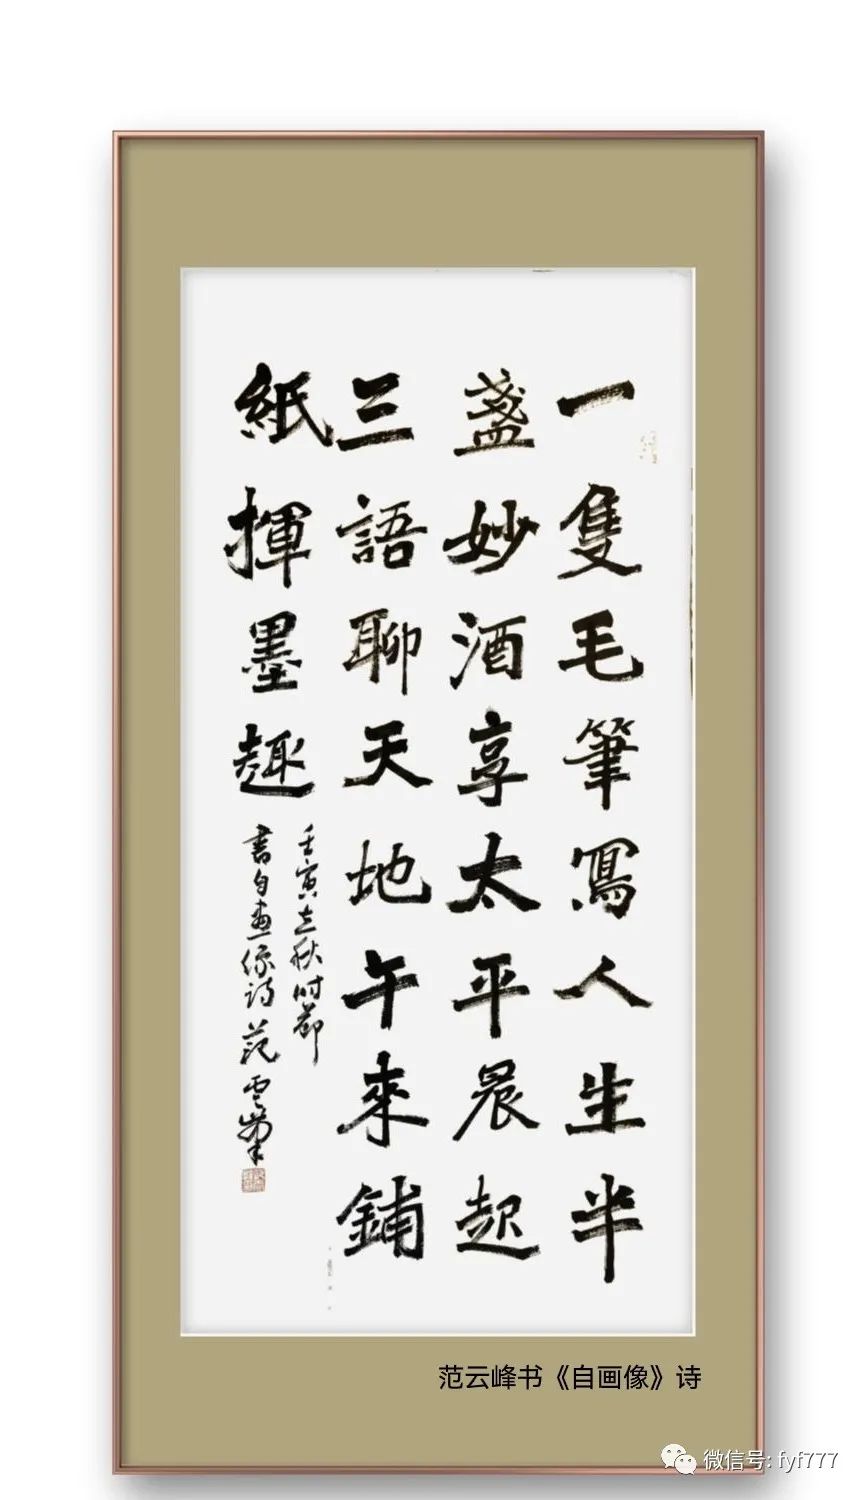 一隻毛筆寫人生半
盞妙酒享太平晨起
三語聊天地午來鋪
紙揮墨趣
壬寅立秋时節
書自画像诗范雲峯
范云峰书《自画像》诗
微信号: fyf777